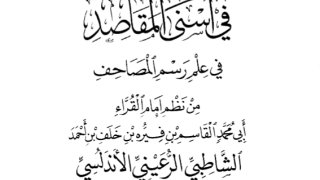 في أَسْنَى ٱلْمَقَاصِدِ
فِي عِلْمِ رَسْمِ ٱلْمَصَاحِفِ
مِنْ نَظْمِ إِمَامِ ٱلْقُرَّاءِ
أَبِي مُحَمَّدٍ ٱلْقَاسِمِ بْنِ فِيرُّهْ بْنِ خَلَفِ بْنِ أَحْمَدَ
ٱلشَّاطِبِيِّ ٱلرُّعَيْنِيِّ ٱلْأَنْدَلُسِيِّ